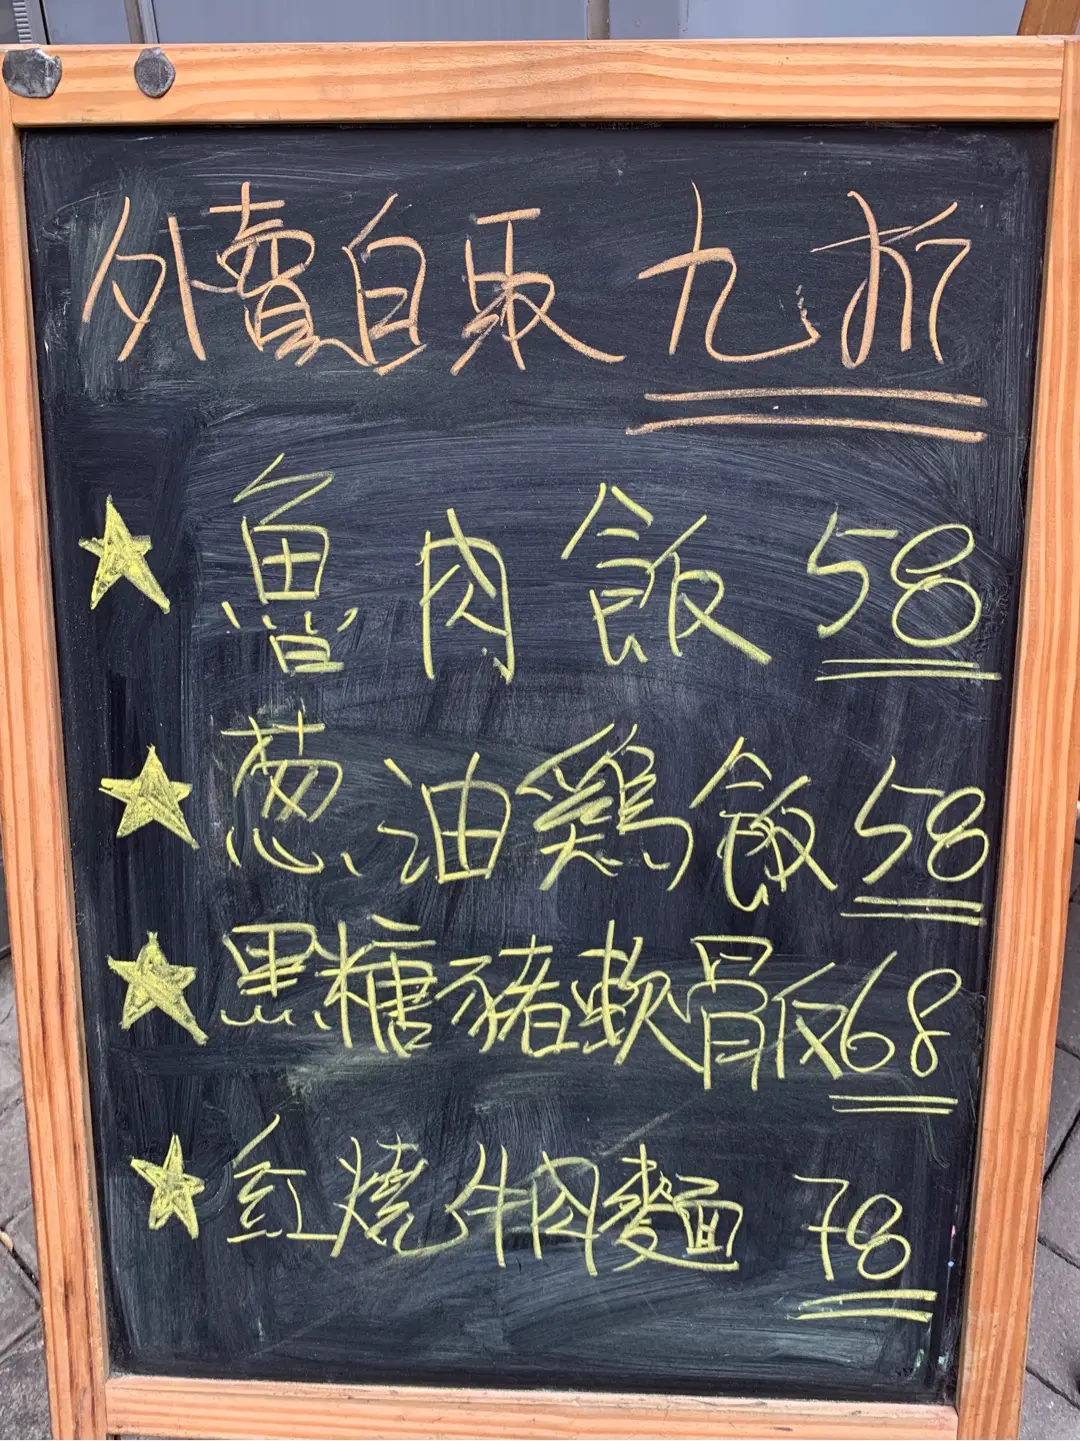 外賣自取 九折
★ 魯肉飯 58
★ 葱油鷄飯 58
★ 黑糖豬軟骨飯 68
★ 紅燒牛肉麵 78